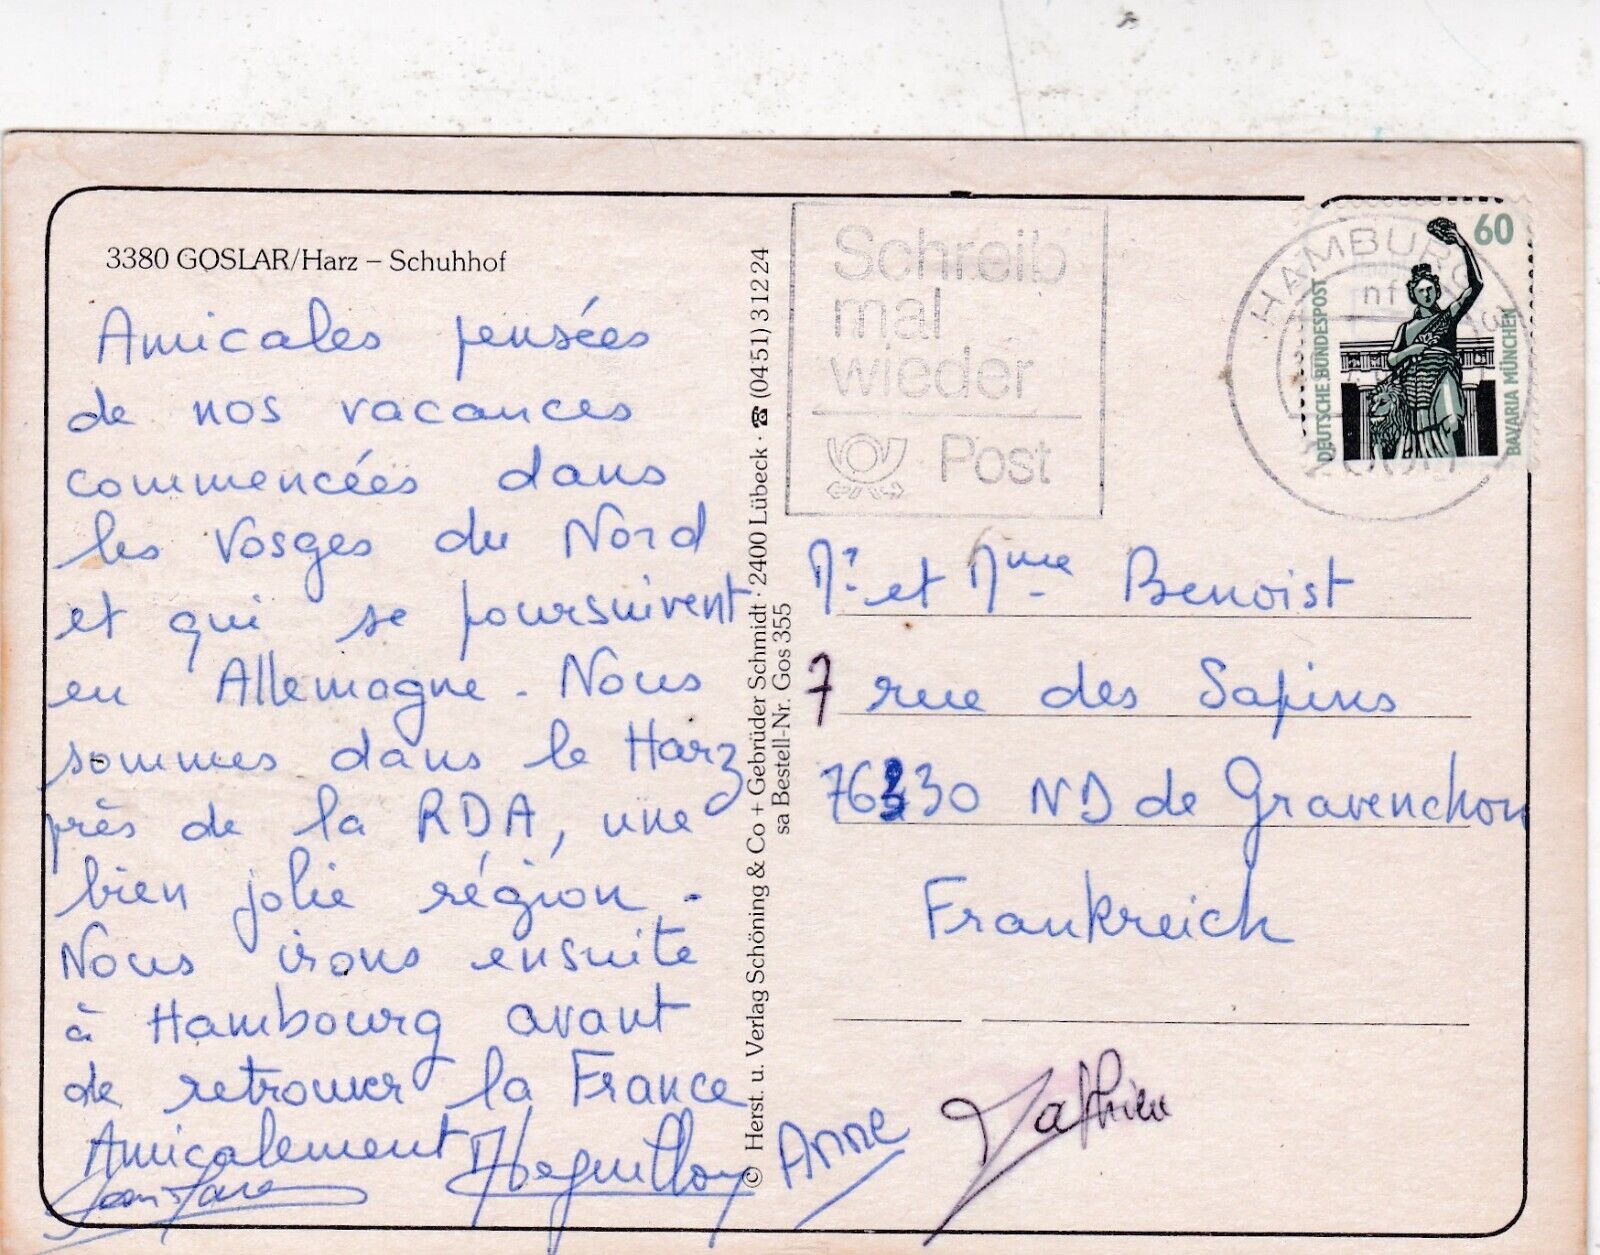 3380 GOSLAR/Harz – Schuhhof
Amicales pensées
de nos vacances
commencées dans
les Vosges du Nord
et qui se poursuivent
en Allemagne. Nous
sommes dans le Harz
près de la RDA, une
bien jolie région.
Nous irons ensuite
à Hambourg avant
de retrouver la France
Amicalement
Anne
Mathieu
© Herst. u. Verlag Schöning & Co + Gebrüder Schmidt · 2400 Lübeck · ☎ (0451) 31224
sa Bestell-Nr. Gos 355
Schreib
mal
wieder
Post
HAMBURG
nf
60
DEUTSCHE BUNDESPOST
BAVARIA MÜNCHEN
Mr et Mme Benoist
7 rue des Sapins
76330 ND de Gravenchon
Frankreich